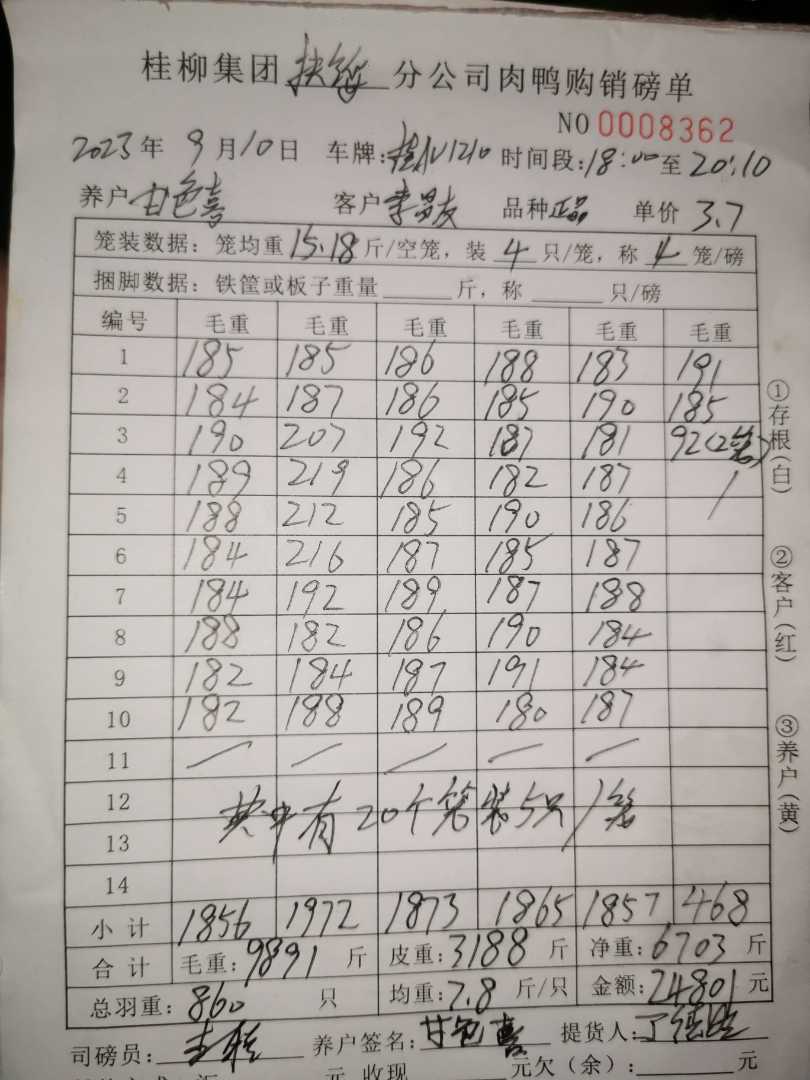 桂柳集团扶绥分公司肉鸭购销磅单
NO 0008362
2023年 9月10日 车牌:桂AU1210 时间段:18:00至20:10
养户 甘色喜 客户 李 友 品种 正品 单价 3.7
笼装数据：笼均重15.18斤/空笼，装4只/笼，称4笼/磅
捆脚数据：铁筐或板子重量______斤，称______只/磅
编号 毛重 毛重 毛重 毛重 毛重 毛重
1 185 185 186 188 183 191
2 184 187 186 185 190 185
3 190 207 192 187 181 92(2笼)
4 189 219 186 182 187 /
5 188 212 185 190 186
6 184 216 187 185 187
7 184 192 189 187 188
8 188 182 186 190 184
9 182 184 187 191 184
10 182 188 189 180 187
11 / / / / /
12
其中有20个笼装5只/笼
13
14
小计 1856 1972 1873 1865 1857 468
合计 毛重:9891斤 皮重:3188斤 净重:6703斤
总羽重:860只 均重:7.8斤/只 金额:24801元
司磅员: 养户签名:甘色喜 提货人:
元 收现 元欠（余）: 元
①存根(白)
②客户(红)
③养户(黄)